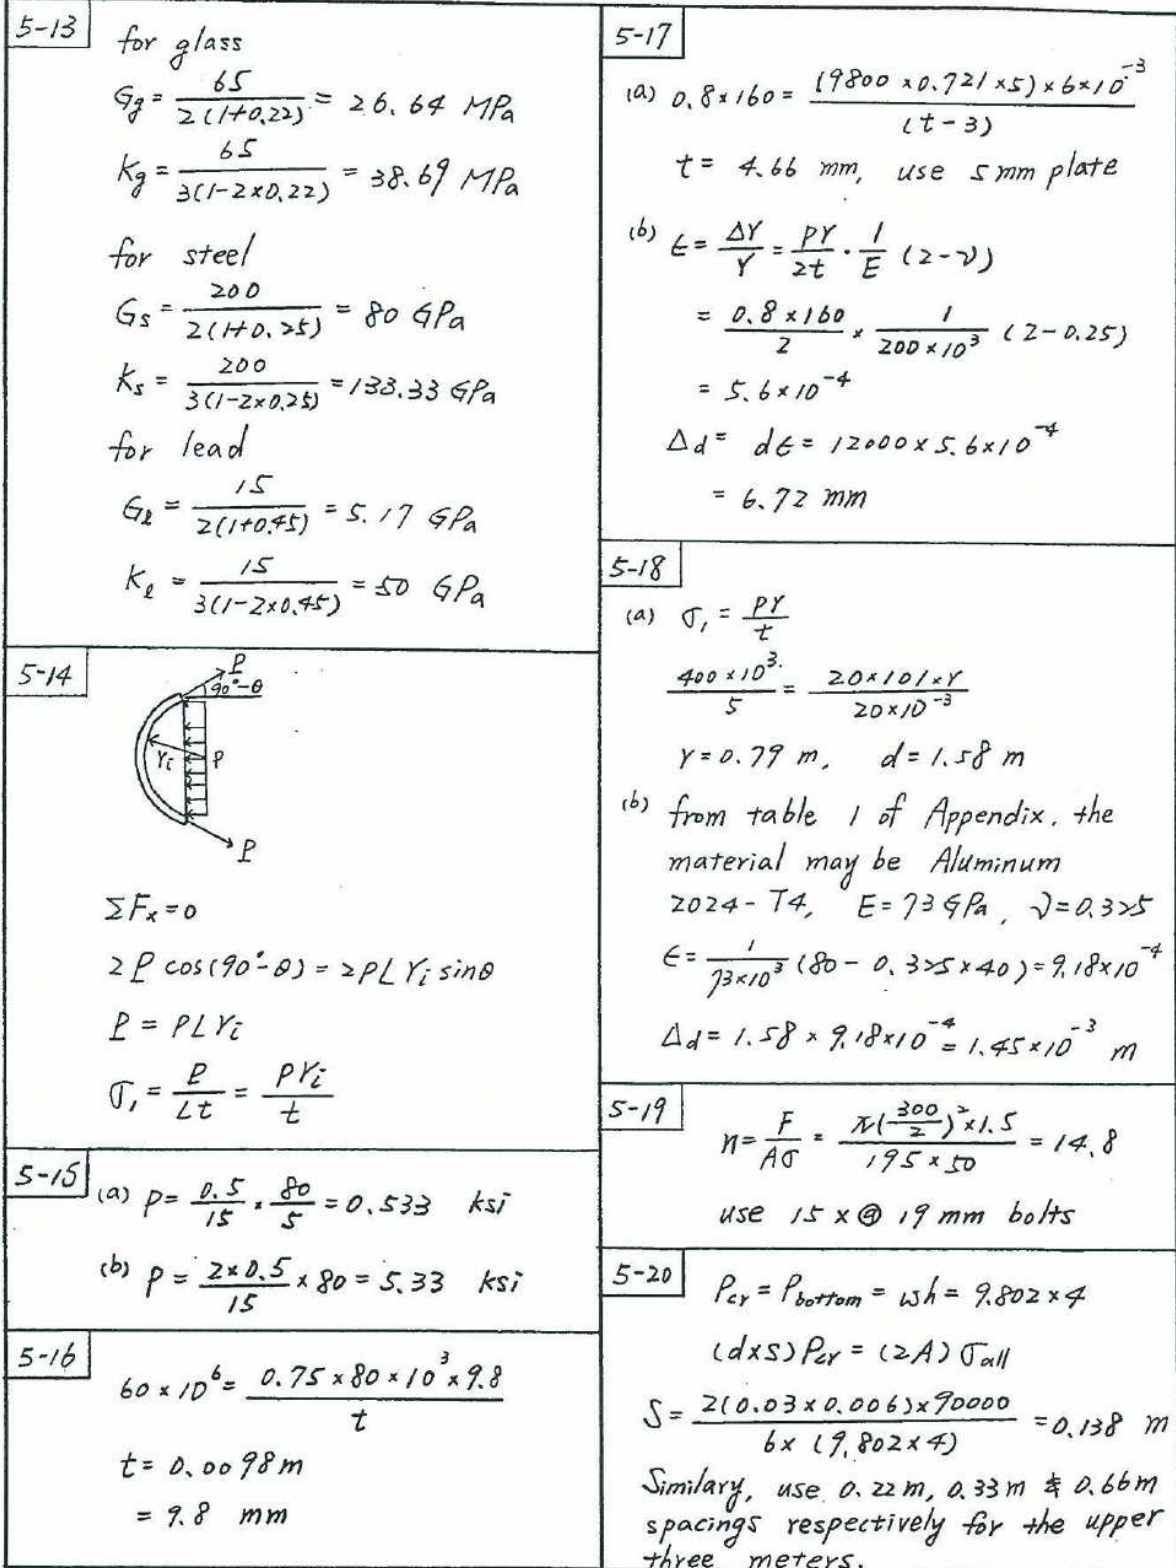 5-13
for glass
Gg = 65 / 2(1+0.22) = 26.64 MPa
Kg = 65 / 3(1-2×0.22) = 38.69 MPa
for steel
Gs = 200 / 2(1+0.25) = 80 GPa
Ks = 200 / 3(1-2×0.25) = 133.33 GPa
for lead
Gℓ = 15 / 2(1+0.45) = 5.17 GPa
Kℓ = 15 / 3(1-2×0.45) = 50 GPa
5-14
P
90°-θ
ri
p
P
ΣFx = 0
2P cos(90°-θ) = 2pL ri sinθ
P = pL ri
σ1 = P / Lt = p ri / t
5-15
(a) p = 0.5/15 × 80/5 = 0.533 ksi
(b) p = 2×0.5 / 15 × 80 = 5.33 ksi
5-16
60 × 10⁶ = 0.75 × 80 × 10³ × 9.8 / t
t = 0.0098 m
= 9.8 mm
5-17
(a) 0.8×160 = (9800 × 0.721 × 5) × 6×10⁻³ / (t-3)
t = 4.66 mm, use 5 mm plate
(b) ϵ = Δr/r = pr/2t · 1/E (2-ν)
= 0.8 × 160 / 2 × 1 / 200×10³ (2-0.25)
= 5.6×10⁻⁴
Δd = dϵ = 12000 × 5.6×10⁻⁴
= 6.72 mm
5-18
(a) σ1 = pr / t
400 × 10³ / 5 = 20×101×r / 20×10⁻³
r = 0.79 m, d = 1.58 m
(b) from table 1 of Appendix, the
material may be Aluminum
2024-T4, E = 73 GPa, ν = 0.325
ϵ = 1 / 73×10³ (80 - 0.325 × 40) = 9.18×10⁻⁴
Δd = 1.58 × 9.18×10⁻⁴ = 1.45×10⁻³ m
5-19
n = F / Aσ = π(300/2)² × 1.5 / 195 × 50 = 14.8
use 15 × @ 19 mm bolts
5-20
Pcr = Pbottom = wh = 9.802 × 4
(d×S) Pcr = (2A) σall
S = 2(0.03 × 0.006) × 90000 / 6× (9.802 × 4) = 0.138 m
Similary, use 0.22 m, 0.33 m & 0.66 m
spacings respectively for the upper
three meters.